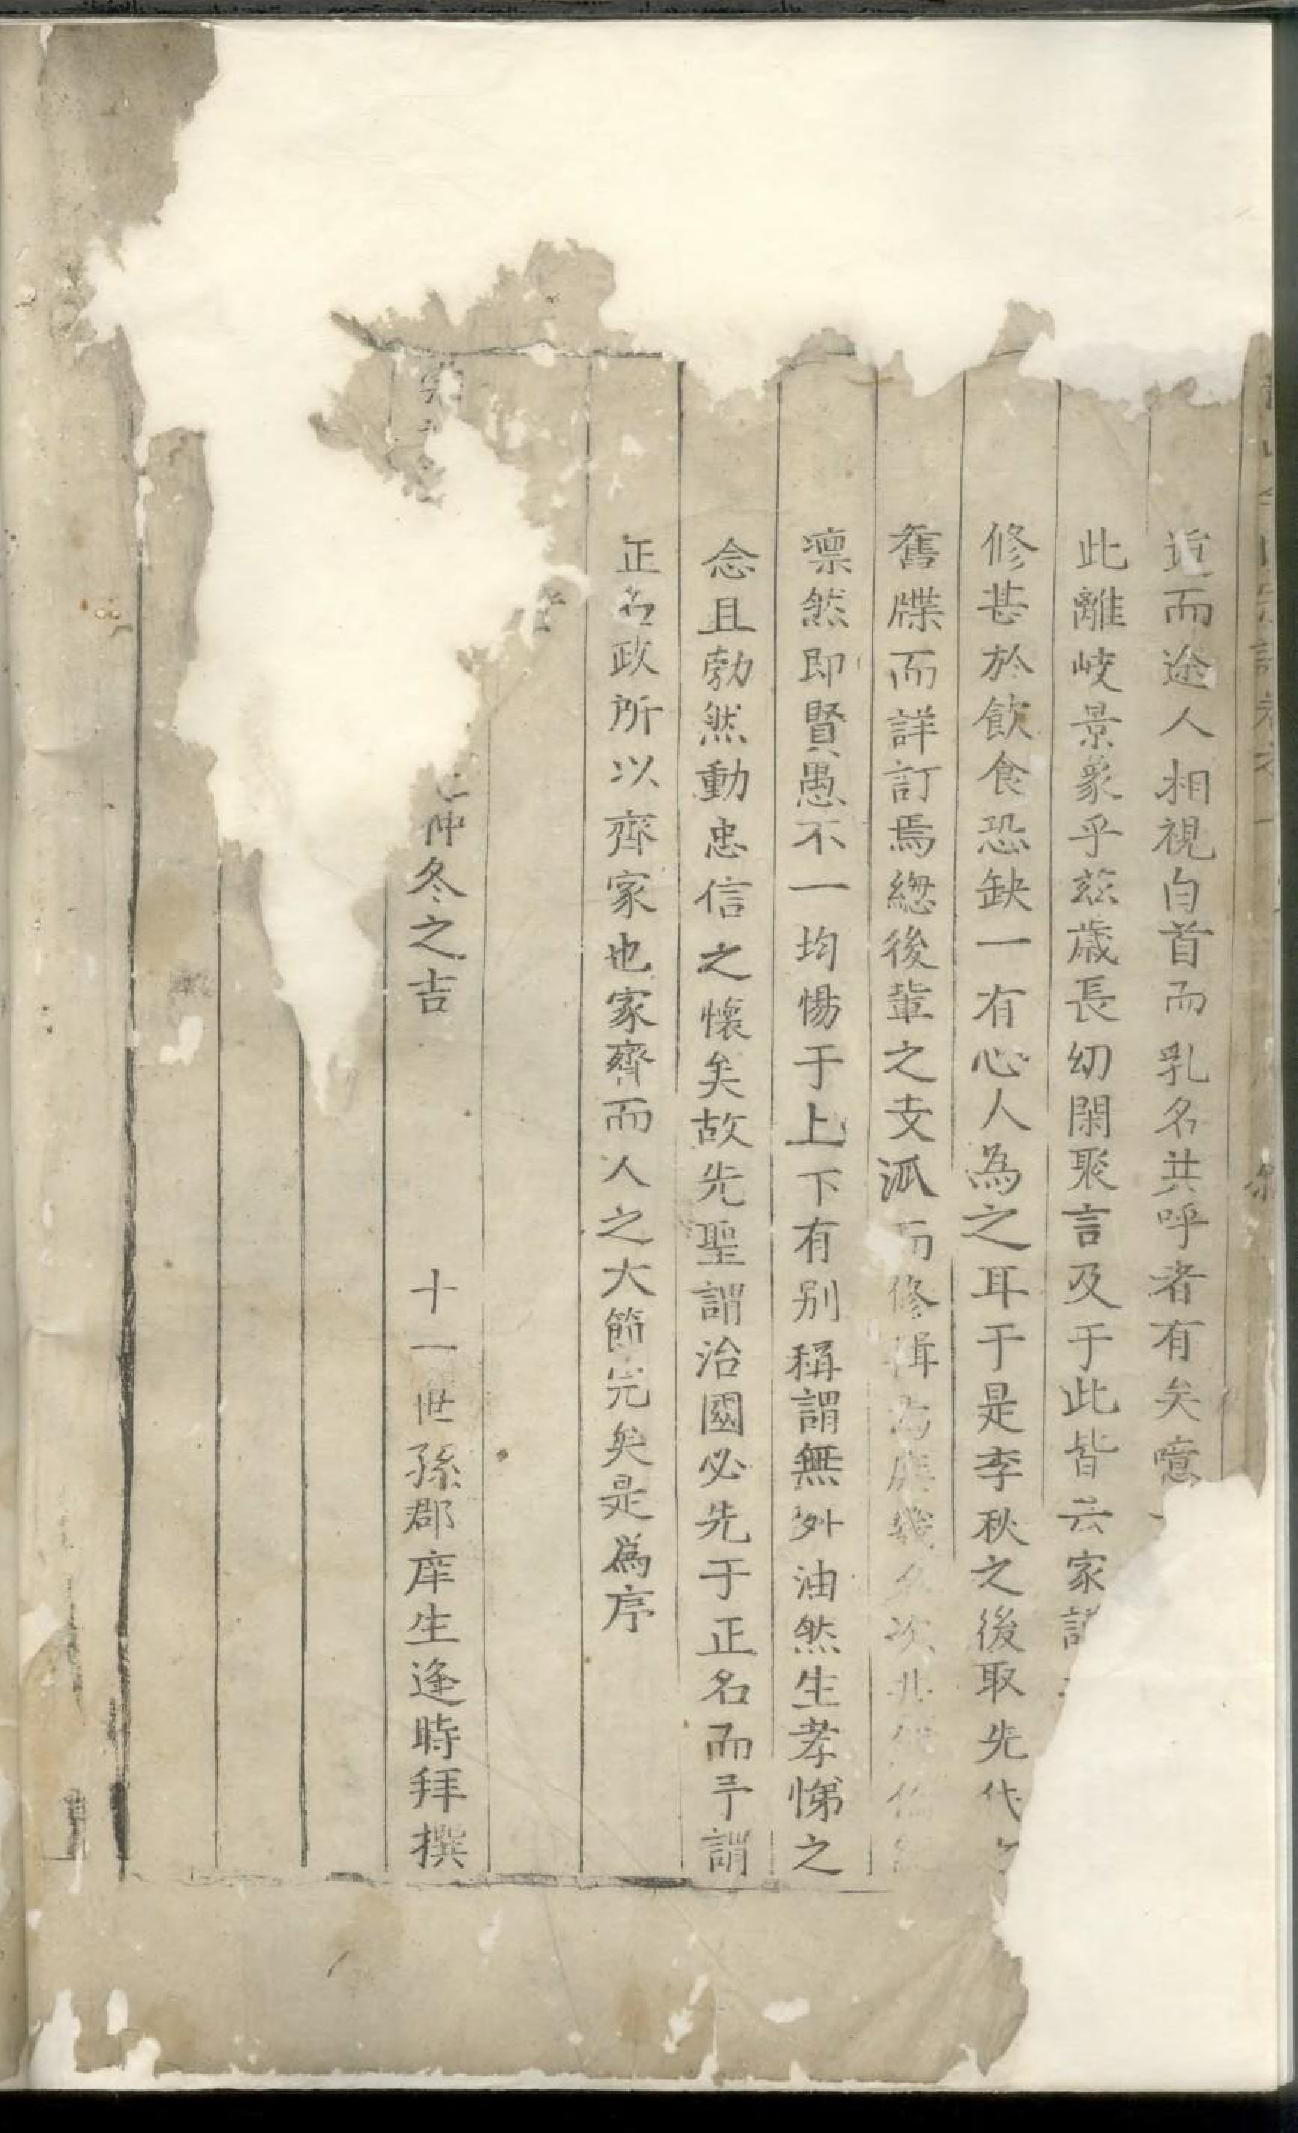 近而途人相視白首而乳名共呼者有矣噫
此離岐景象乎茲歲長幼閑聚言及于此皆云家譜
修甚於飲食恐缺一有心人為之耳于是季秋之後取先代之
舊牒而詳訂焉緫後輩之支派而修緝為庶幾名次
凛然即賢愚不一均惕于上下有别稱謂無外油然生孝悌之
念且勃然動忠信之懷矣故先聖謂治國必先于正名而予謂
正名政所以齊家也家齊而人之大節完矣是為序
仲冬之吉 十一世孫郡庠生逢時拜撰